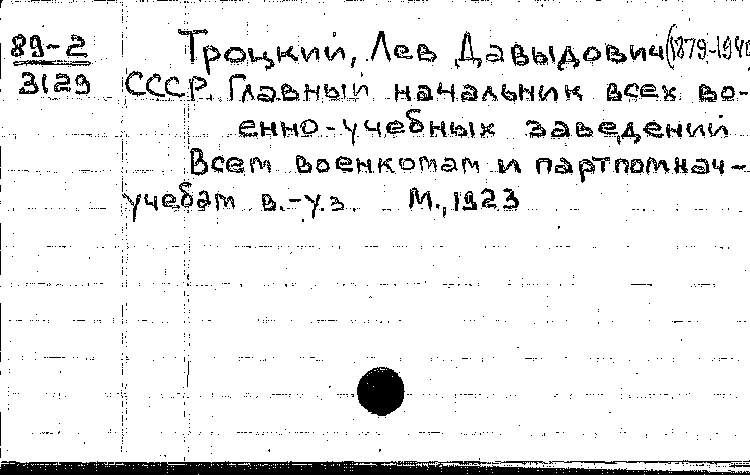 89-2 Троцкий, Лев Давыдович (1879-1940
3129 СССР. Главный начальник всех во-
енно-учебных заведений
Всем военкомам и партпомнач-
учебам в.-у.з. М., 1923